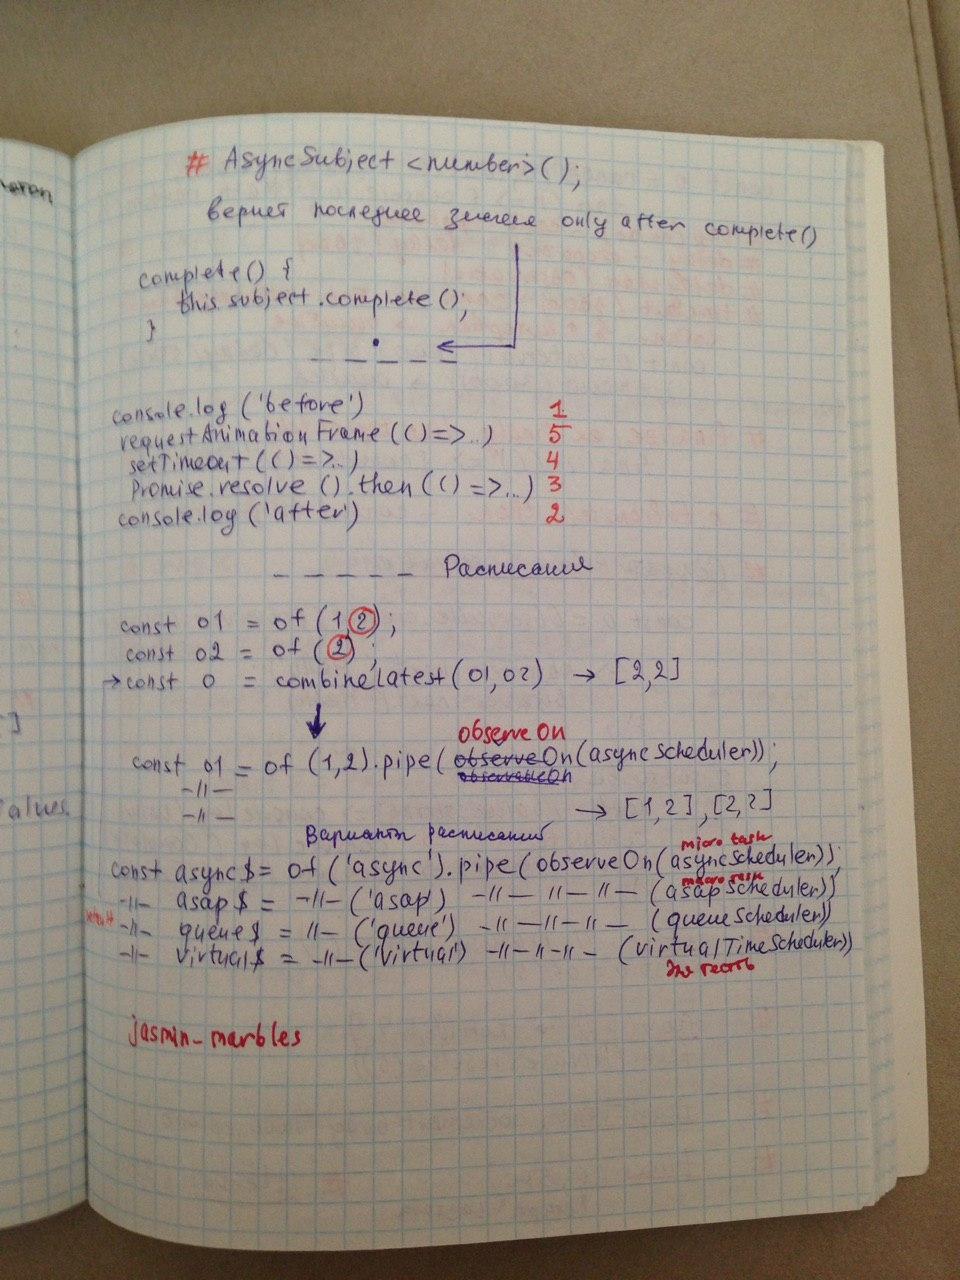 # AsyncSubject <number>();
вернет последнее only after complete()
complete() {
this.subject.complete();
}
console.log ('before') 1
requestAnimationFrame (() => ..) 5
setTimeout (() => ..) 4
Promise.resolve ().then (() => ...) 3
console.log ('after') 2
_ _ _ _ _ Расписания
const o1 = of (1,2);
const o2 = of (2);
→ const o = combinelatest (o1, o2) → [2,2]
observeOn
const o1 = of (1,2).pipe (observeOn (async scheduler));
-11-
-11- → [1,2], [2,2]
Варианты расписаний
micro task
const async$ = of ('async').pipe (observeOn (asyncScheduler));
-11- asap$ = -11- ('asap') -11- 11- 11- (asap Scheduler))
-11- queue$ = 11- ('queue') -11- 11- 11- (queue Scheduler))
-11- virtual$ = -11- ('virtual') -11- 11- 11- (virtualTimeScheduler))
jasmin-marbles
alues
]